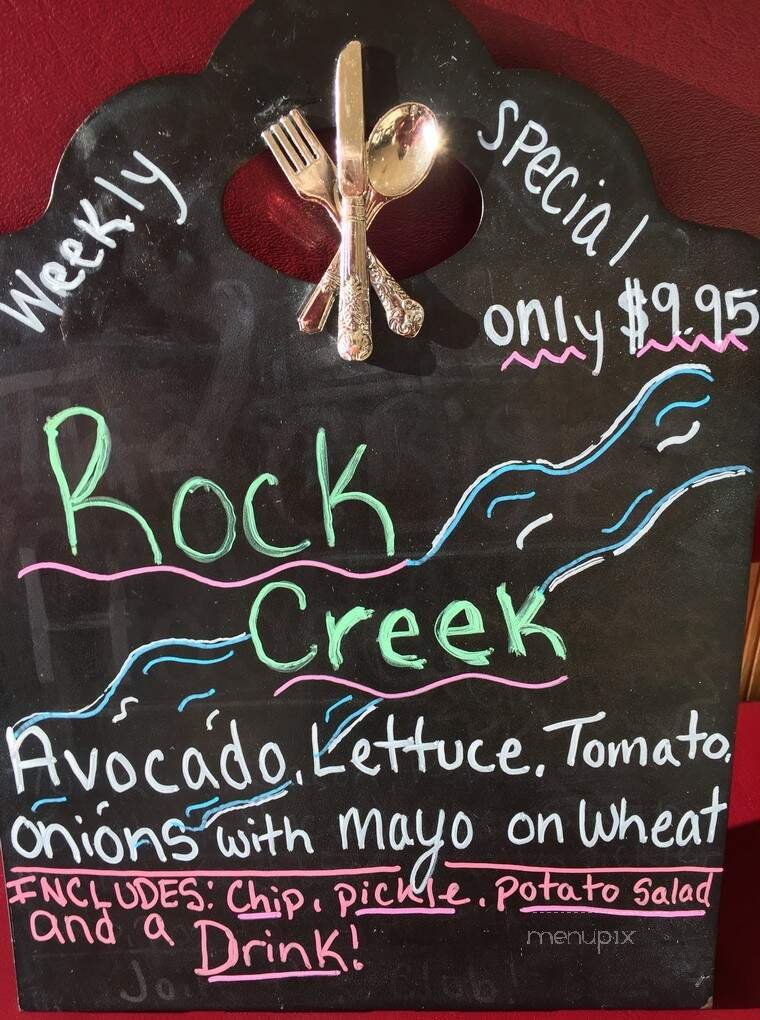 Weekly Special
only $9.95
Rock
Creek
Avocado, Lettuce, Tomato,
onions with mayo on Wheat
INCLUDES: Chip, pickle, Potato Salad
and a Drink!
menupix